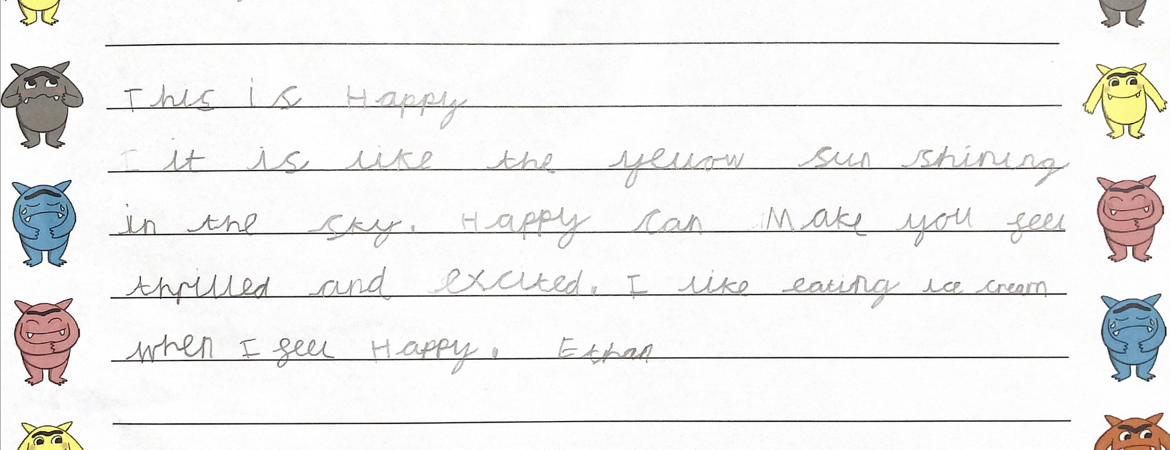 This is Happy
I it is like the yellow sun shining
in the sky. Happy can Make you feel
thrilled and excited. I like eating ice cream
when I feel Happy. Ethan